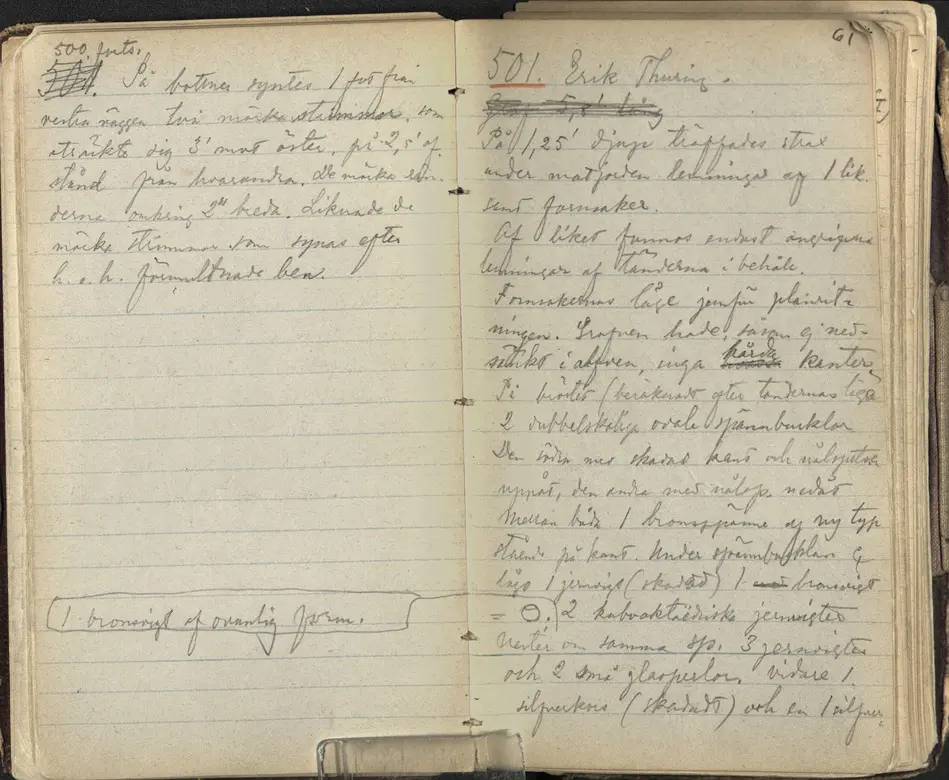 500 forts.
501. På bottnen syntes 1 fot från
vestra väggen två mörka strimmor, som
sträckte sig 3' mot öster, på 2,5' af-
stånd från hvarandra. De mörka rän-
derna omkring 2" breda. Liknade de
mörka strimmor som synas efter
h. o. h. förmultnade ben.
1 bronsvigt af ovanlig form.
61
501. Erik Thuring.
Graf 5,8' lång
På 1,25' djup träffades strax
under matjorden lemningar af 1 lik
samt fornsaker.
Af liket funnos endast
lemningar af tänderna i behåll.
Fornsakernas läge jemför planrit-
ningen. Grafven hade, såsom ej ned-
sänkt i alfven, inga hårda kanter
På bröstet (beräknadt efter tändernas läge
2 dubbelskaliga ovala spännbucklor
Den södra med skadad kant och nålspetsen
uppåt, den andra med nålsp. nedåt
Mellan båda 1 bronsspänne af ny typ
stående på kant. Under spännbucklan
låg 1 jernvigt (skadad) 1 bronsvigt
= O. 2 kubooktaëdriska jernvigter
Vester om samma sp. 3 jernvigter
och 2 små glasperlor. Vidare 1
silfverkors (skadadt) och en 1 silfver-